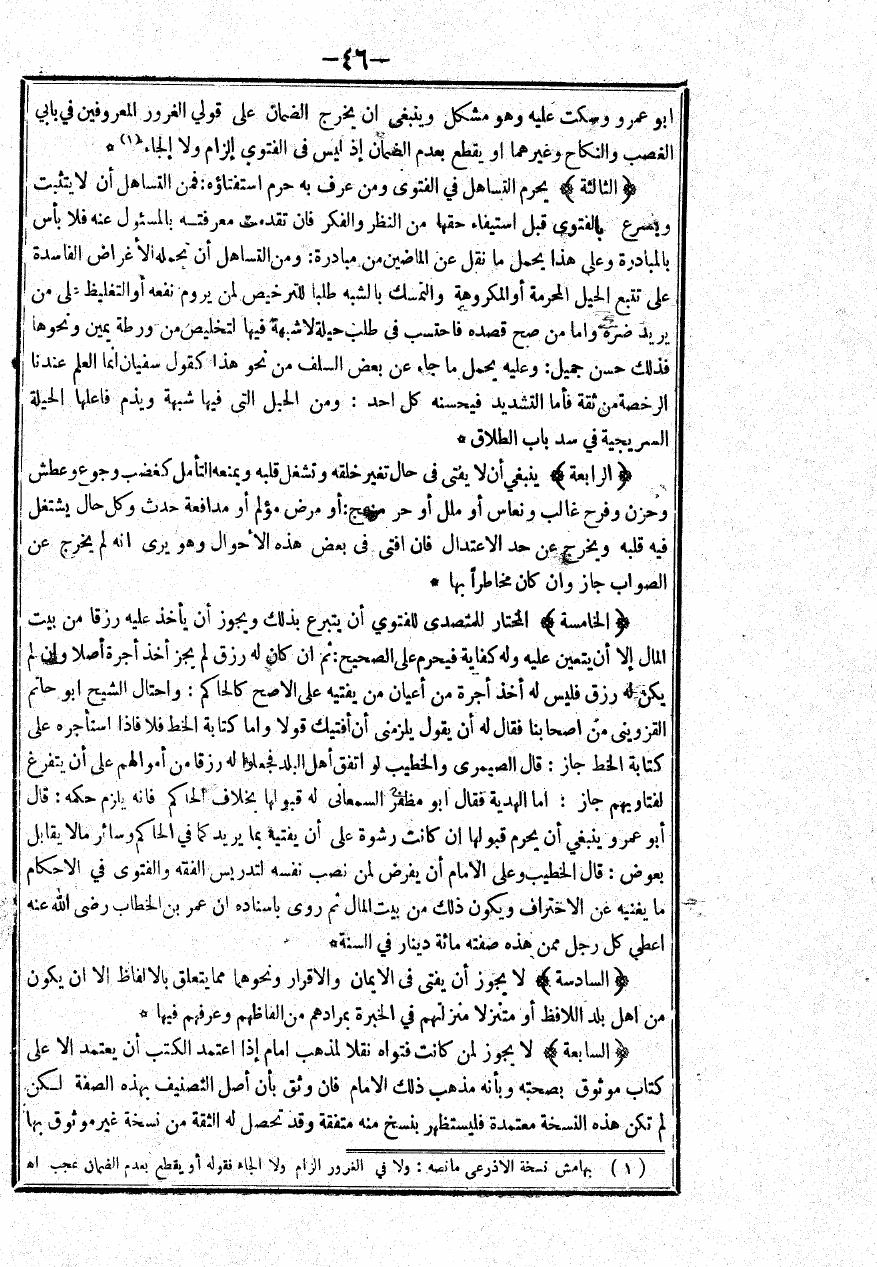 -٤٦-
ابو عمرو وسكت عليه وهو مشكل وينبغى ان يخرج الضمان على قولي الغرور المعروفين في بابي
الغصب والنكاح وغيرهما او يقطع بعدم الضمان إذ ليس فى الفتوي إلزام ولا إلجاء (١) *
﴿ الثالثة ﴾ يحرم التساهل في الفتوى ومن عرف به حرم استفتاؤه: فمن التساهل أن لا يتثبت
ويسرع بالفتوي قبل استيفاء حقها من النظر والفكر فان تقدمت معرفتـه بالمسئول عنه فلا بأس
بالمبادرة وعلى هذا يحمل ما نقل عن الماضين من مبادرة: ومن التساهل أن تحمله الأغراض الفاسدة
على تتبع الحيل المحرمة أو المكروهة والتمسك بالشبه طلبا للترخيص لمن يروم نفعه أو التغليظ على من
يريد ضره واما من صح قصده فاحتسب فى طلب حيلة لا شبهة فيها لتخليص من ورطة يمين ونحوها
فذلك حسن جميل: وعليه يحمل ما جاء عن بعض السلف من نحو هذا كقول سفيان انما العلم عندنا
الرخصة من ثقة فأما التشديد فيحسنه كل احد : ومن الحيل التى فيها شبهة ويذم فاعلها الحيلة
السريجية في سد باب الطلاق *
﴿ الرابعة ﴾ ينبغي أن لا يفتى فى حال تغير خلقه وتشغل قلبه ويمنعه التأمل كغضب وجوع وعطش
وحزن وفرح غالب ونعاس أو ملل أو حر مزعج: أو مرض مؤلم أو مدافعة حدث وكل حال يشتغل
فيه قلبه ويخرج عن حد الاعتدال فان افتى فى بعض هذه الأحوال وهو يرى انه لم يخرج عن
الصواب جاز وان كان مخاطراً بها *
﴿ الخامسة ﴾ المختار للمتصدى للفتوي أن يتبرع بذلك ويجوز أن يأخذ عليه رزقا من بيت
المال إلا أن يتعين عليه وله كفاية فيحرم على الصحيح: ثم ان كان له رزق لم يجز أخذ أجرة أصلا وان لم
يكن له رزق فليس له أخذ أجرة من أعيان من يفتيه على الاصح كالحاكم : واحتال الشيح ابو حاتم
القزويني من اصحابنا فقال له أن يقول يلزمنى أن أفتيك قولا واما كتابة الخط فلا فاذا استأجره على
كتابة الخط جاز : قال الصيمرى والخطيب لو اتفق أهل البلد فجعلوا له رزقا من أموالهم على أن يتفرغ
لفتاويهم جاز : اما الهدية فقال ابو مظفر السمعانى له قبولها بخلاف الحاكم فانه يلزم حكمه : قال
أبو عمرو ينبغي أن يحرم قبولها ان كانت رشوة على أن يفتيه بما يريد كما في الحاكم وسائر مالا يقابل
بعوض : قال الخطيب وعلى الامام أن يفرض لمن نصب نفسه لتدريس الفقه والفتوى في الاحكام
ما يغنيه عن الاحتراف ويكون ذلك من بيت المال ثم روى باسناده ان عمر بن الخطاب رضى الله عنه
اعطي كل رجل ممن هذه صفته مائة دينار في السنة *
﴿ السادسة ﴾ لا يجوز أن يفتى فى الايمان والاقرار ونحوهما مما يتعلق بالالفاظ الا ان يكون
من اهل بلد اللافظ أو متنزلا منزلتهم في الخبرة بمرادهم من الفاظهم وعرفهم فيها *
﴿ السابعة ﴾ لا يجوز لمن كانت فتواه نقلا لمذهب امام إذا اعتمد الكتب أن يعتمد الا على
كتاب موثوق بصحته وبأنه مذهب ذلك الامام فان وثق بأن أصل التصنيف بهذه الصفة لـكن
لم تكن هذه النسخة معتمدة فليستظهر بنسخ منه متفقة وقد تحصل له الثقة من نسخة غير موثوق بها
( ١ ) بهامش نسخة الاذرعى ما نصه : ولا في الغرور الزام ولا الجاء فقوله أو يقطع بعدم الضمان عجب اه